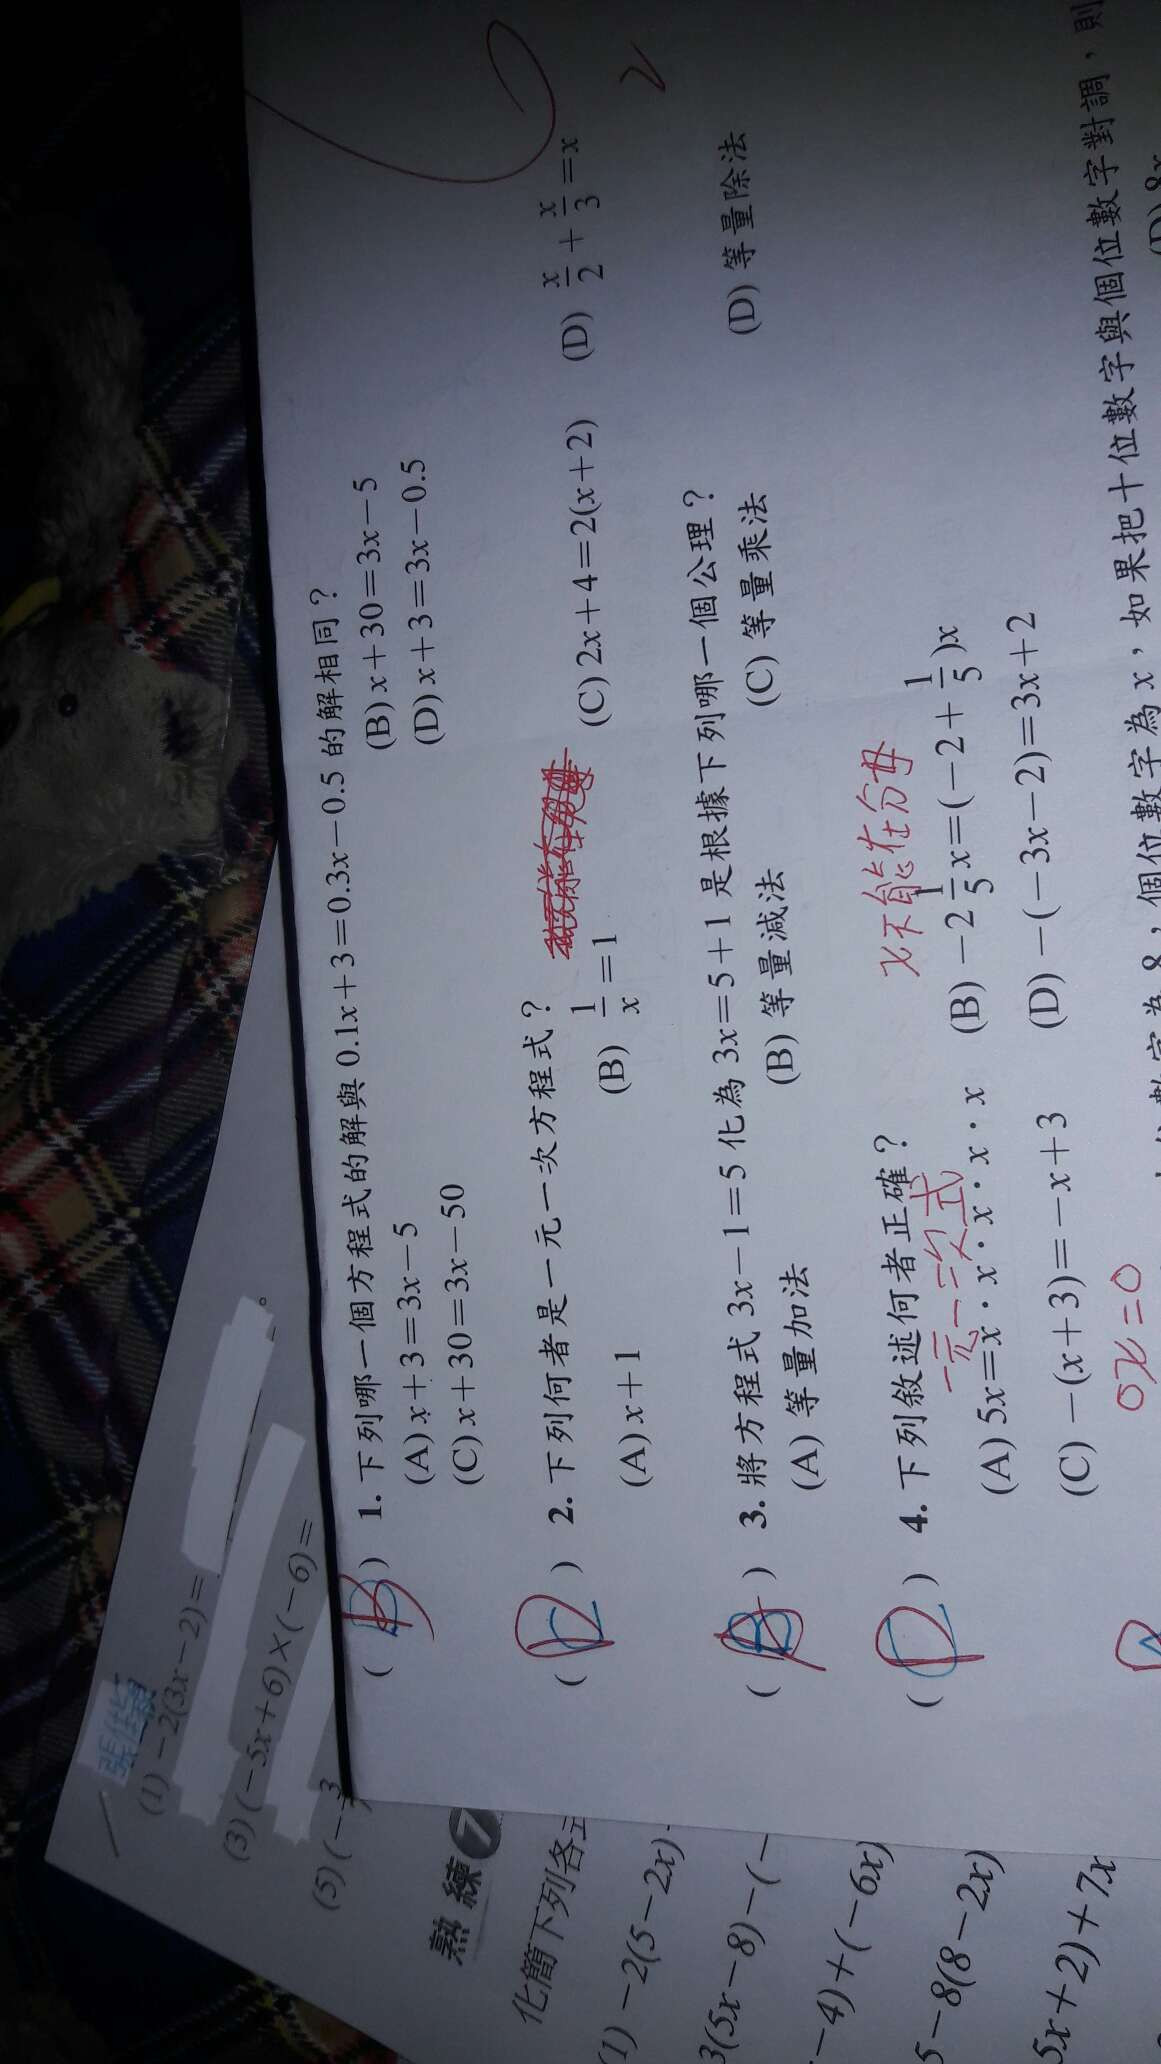 張
(1) －2(3x－2)＝
(3) (－5x＋6)×(－6)＝
(5) (－3
熟練 7
化簡下列各
(1) －2(5－2x)
3(5x－8)－(－
－4)＋(－6x)
5－8(8－2x)
5x＋2)＋7x
( B ) 1. 下列哪一個方程式的解與 0.1x＋3＝0.3x－0.5 的解相同？
(A) x＋3＝3x－5 (B) x＋30＝3x－5
(C) x＋30＝3x－50 (D) x＋3＝3x－0.5
( D ) 2. 下列何者是一元一次方程式？
(A) x＋1 (B) 1/x＝1 (C) 2x＋4＝2(x＋2) (D) x/2＋x/3＝x
( A ) 3. 將方程式 3x－1＝5 化為 3x＝5＋1 是根據下列哪一個公理？
(A) 等量加法 (B) 等量減法 (C) 等量乘法 (D) 等量除法
x不能在分母
( D ) 4. 下列敘述何者正確？
一元一次式
(A) 5x＝x．x．x．x．x (B) －2 1/5 x＝(－2＋1/5)x
(C) －(x＋3)＝－x＋3 (D) －(－3x－2)＝3x＋2
0x＝0
8，個位數字為 x，如果把十位數字與個位數字對調，則
(D) 8x